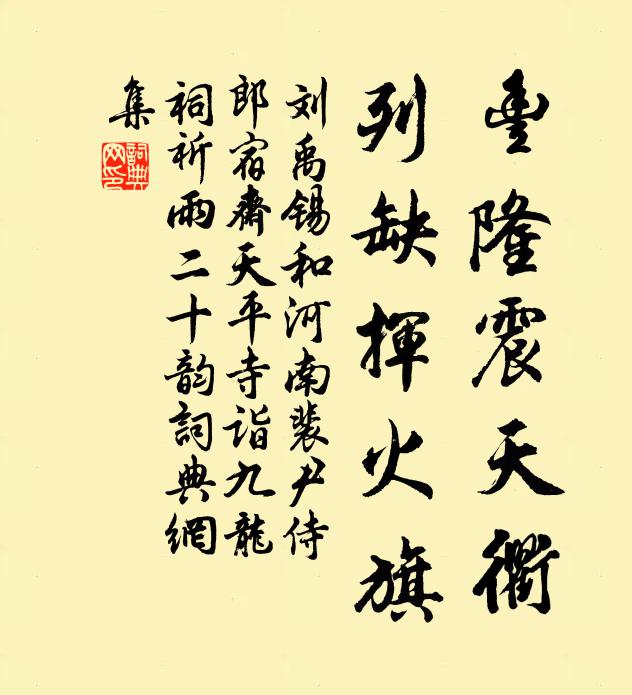 豊隆震天衢
列缺揮火旗
刘禹锡和河南裴尹侍
郎宿齋天平寺詣九龍
祠祈雨二十韵詞典網
集
詞典網印